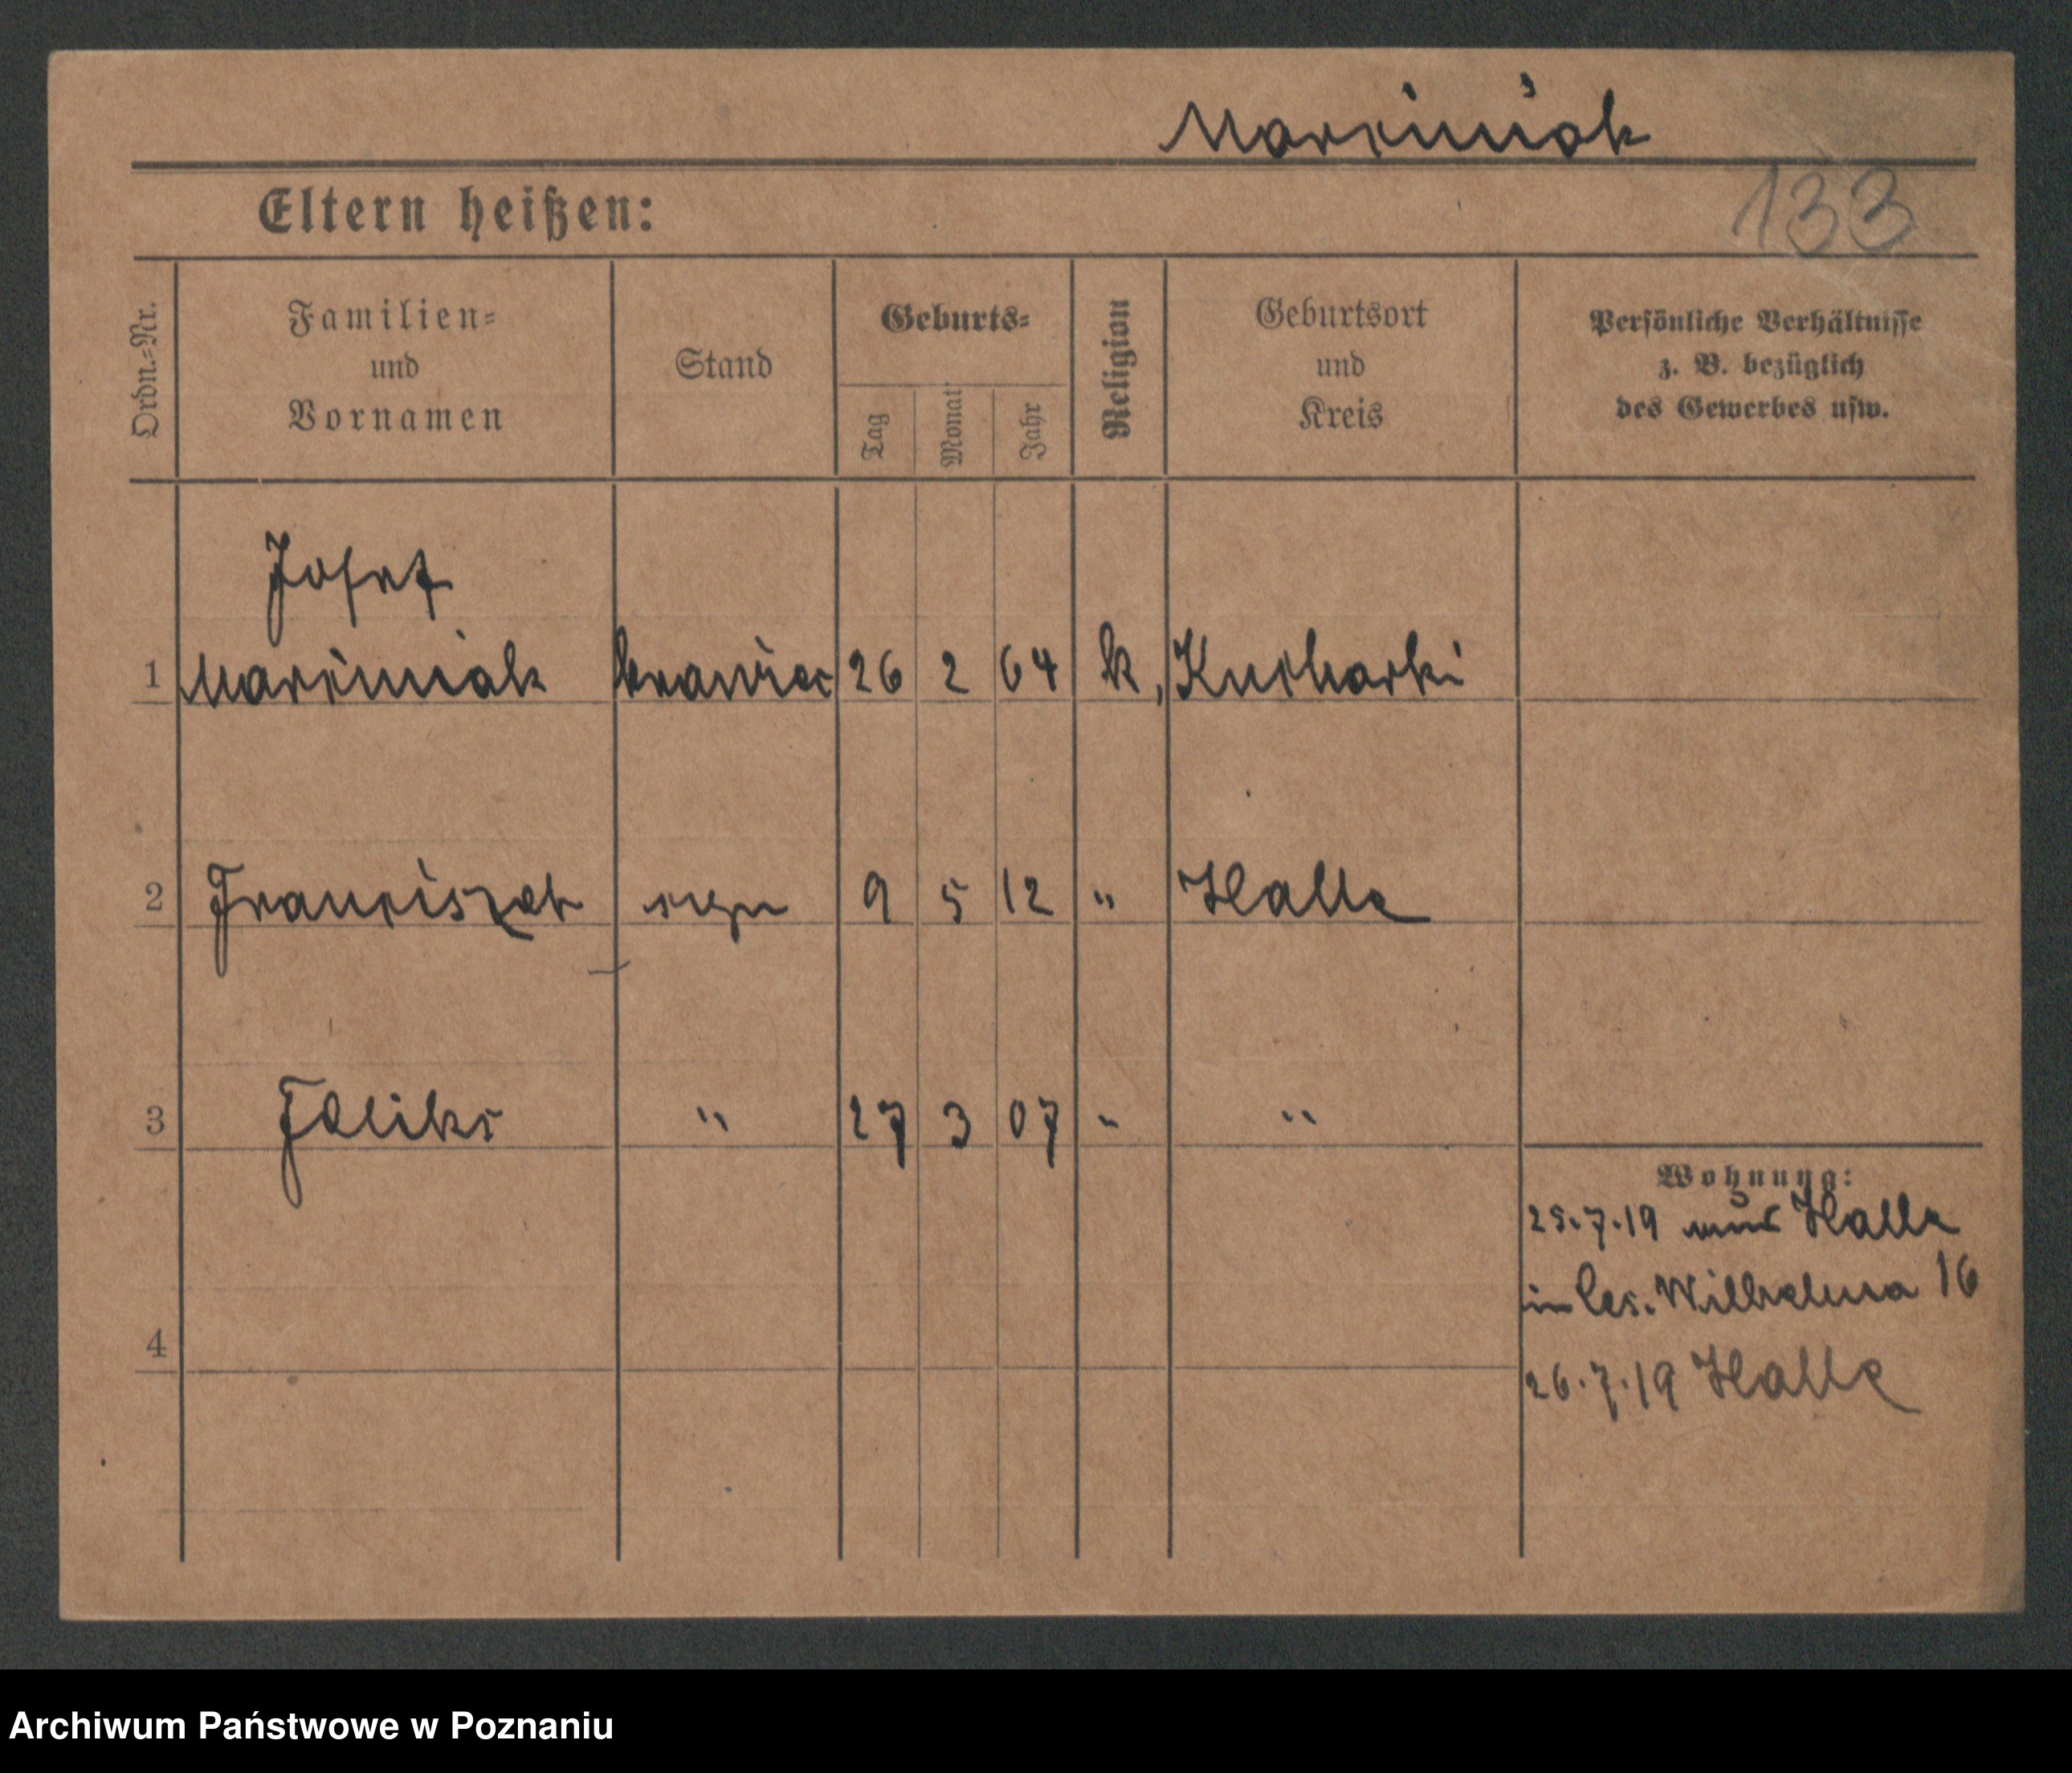 Marciniak
133
Eltern heißen:
Ordn.-Nr.
Familien-
und
Vornamen
Stand
Geburts-
Tag
Monat
Jahr
Religion
Geburtsort
und
Kreis
Persönliche Verhältnisse
z. B. bezüglich
des Gewerbes usw.
Josef
1 Marciniak krawiec 26 2 64 k, Kucharki
2 Franciszek syn 9 5 12 " Halle
3 Feliks " 27 3 07 " "
Wohnung:
25.7.19 aus Halle
in Ces. Wilhelma 16
4
26.7.19 Halle
Archiwum Państwowe w Poznaniu